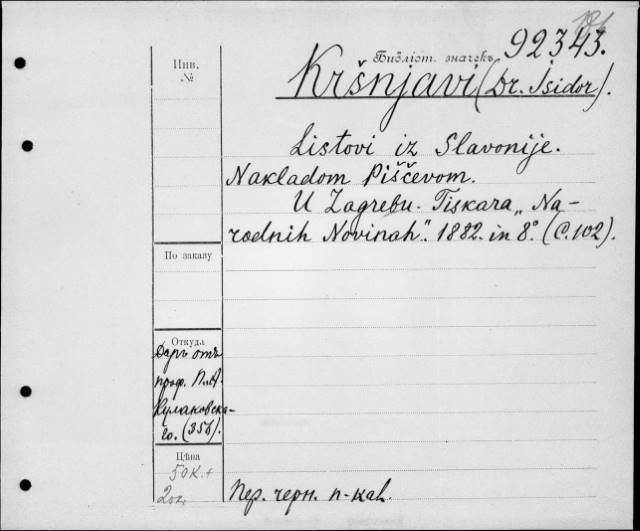 Библіот. значекъ 92343.
Инв.
№
Kršnjavi (Dr. Isidor).
Listovi iz Slavonije.
Nakladom Piščevom.
U Zagrebu. Tiskara „Na-
rodnih Novinah”. 1882. in 8°. (C. 102).
По заказу
Откуда
Даръ отъ
проф. П. А.
Кулаковска-
го. (356).
Цѣна
50 к. +
20 к.
Пер. черн. п-кал.